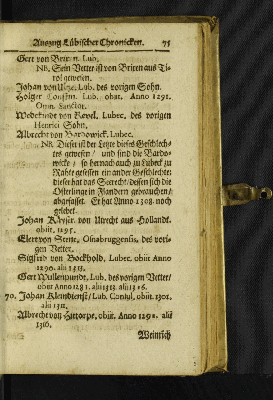 Auszug Lübischer Chronicken. 75
Gert von Brixen. Lub.
NB. Sein Vetter ist von Brixen aus Ti-
rol gewesen.
Johan von Ulze. Lub. des vorigen Sohn.
Holger Lub. obiit. Anno 1291.
Omn. Sanctor.
Wedekindt von Revel, Lubec. des vorigen
Henrici Sohn.
Albrecht von Bardowick. Lubec.
NB. Dieser ist der Letzte dieses Geschlech-
tes gewesen / und sind die Bardo-
wicke / so hernach auch zu Lübeck zu
Rahte gesessen ein ander Geschlechte:
dieser hat das Seerecht / dessen sich die
Osterlinge in Flandern gebrauchen /
abgefasset. Er hat Anno 1308. noch
gelebet.
Johan Keyser. von Utrecht aus Hollandt.
obiit. 1295.
Elert von Stene, Osnabruggensis, des vori-
gen Vetter.
Sigfrid von Bockhold, Lubec. obiit Anno
1290. alii 1313.
Gert Wullenpundt, Lub. des vorigen Vetter /
obiit Anno 1281. alii 1313. alii 1316.
70. Johan Klendienst / Lub. Consul, obiit. 1301.
alii 1311.
Albrecht von obiit. Anno 1291. alii
1316.
Weinrich